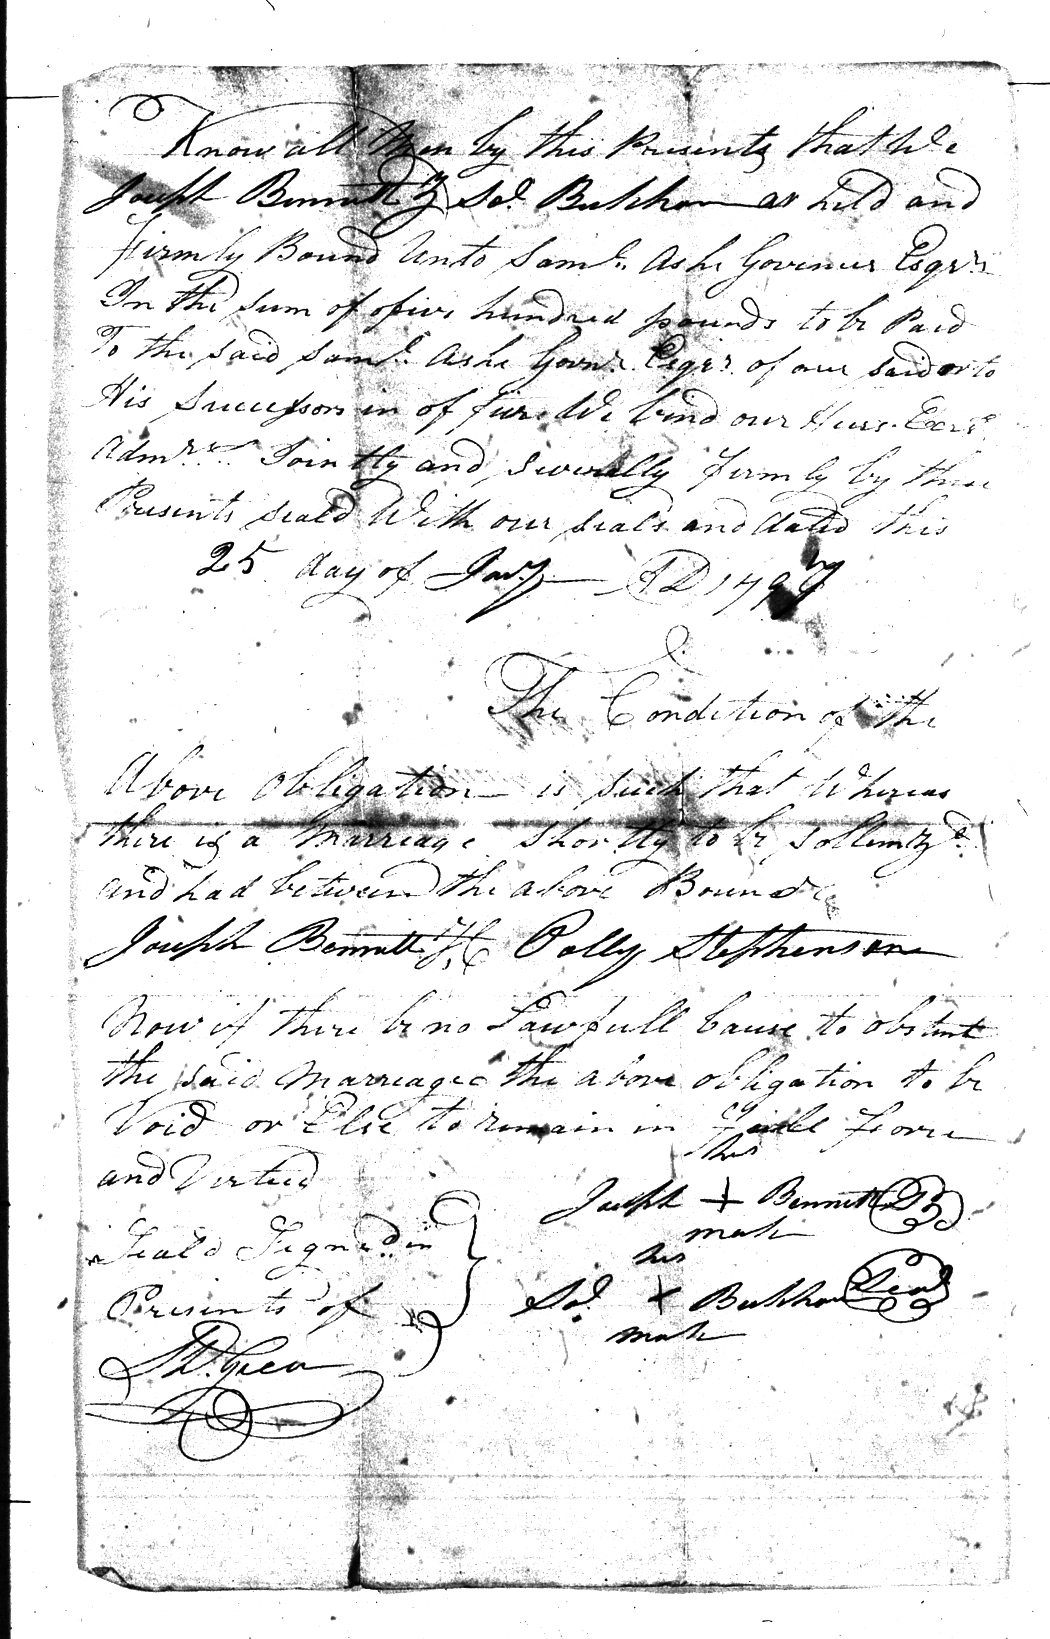 Know all Men by this Presents that We
Joseph Bennett & Sol. as held and
firmly Bound Unto Saml. Ashe Governer Esqr.
In the Sum of five hundred pounds to be Paid
To the said Saml. Ashe Govr. Esqr. of our said or to
His Successors in of fice We bind our Heirs Exrs.
Admrs. Jointly and Severally firmly by these
Presents Seald With our Seals and dated this
25 day of Jany AD 1797
The Condition of the
Above Obligation is such that Whereas
there is a Marriage Shortly to be
and had between the above Bound
Joseph Bennett & Polly Stephenson
Now if there be no Lawfull Cause to obstruct
the said Marriage the above obligation to be
Void or Else to remain in full Force
and Virtue
his
Joseph + Bennett
mark
Seald Signed in
his
Presents of
Sol. + Seal
mark